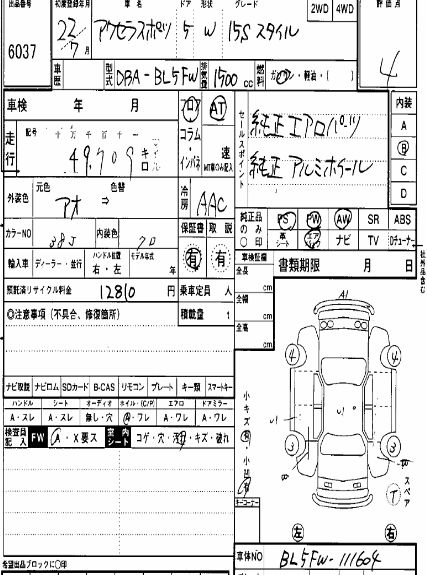 出品番号 初度登録年月 車名 ドア 形状 グレード 2WD 4WD 評価点
6037 22年7月 アクセラスポーツ 5 W 15S スタイル 4
車歴 型式 DBA-BL5FW 排気量 1500cc 燃料 ガソリン・軽油・( )
車検 年 月 フロア AT 内装
コラム A
走行 記号 十万千百十一 インパネ 速 セールスポイント 純正エアロパーツ B
49,709 キロ MT車のみ記入 純正アルミホイール C
D
外装色 元色 色替 冷房 AAC
アオ ⇒
純正品のみ〇印 PS PW AW SR ABS
カラーNO 38J 内装色 70 保証書 取説 革シート エアB ナビ TV Dチューナー
輸入車 ディーラー・並行 ハンドル位置 右・左 モデル年式 年 有 有
車検整備 書類期限 月 日 社外品含む
預託済リサイクル料金 12810 円 乗車定員 人 全長 cm
◎注意事項（不具合、修復箇所） 積載量 t 全幅 cm
全高 cm
A1
4 4
U1 U1
3 3
ナビ取説 ナビロム SDカード B-CAS リモコン プレート キー類 スマートキー
ハンドル シート オーディオ ホイル・(C/P) エアロ ドアミラー
A・スレ A・スレ 無し・穴 A・ワレ A・ワレ A・ワレ
検査員記入 FW A・X要ス コゲ・穴・キズ・破れ
小キズ・有・小凹
キーコーナー
T スペア
左 右
車体NO BL5FW-111604
希望出品ブロックに〇印